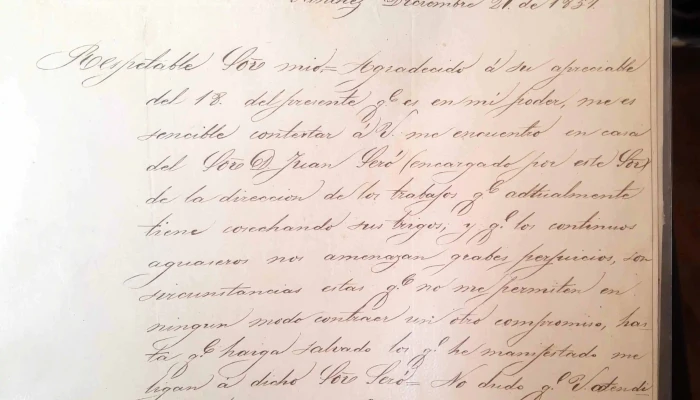 Diciembre 21. de 1851.
Respetable Sor. mio,= Agradecido á su apreciable
del 18. del presente q.e es en mi poder, me es
sencible contestar á V. me encuentro en casa
del Sor. D. Juan Seró (encargado por este Sor.)
de la direccion de los trabajos q.e adtualmente
tiene cosechando sus trigos; y q.e los continuos
aguaseros nos amenazan grabes perjuicios, son
sircunstancias estas q.e no me permiten en
ningun modo contraer un otro compromiso, has-
ta q.e haiga salvado los q.e he manifestado me
ligan á dicho Sor. Seró= No dudo q.e V. atende